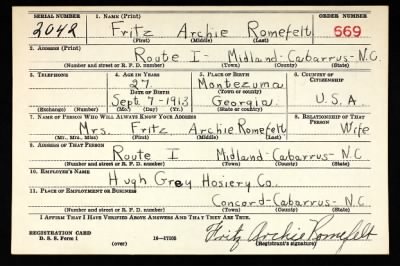 SERIAL NUMBER 1. NAME (Print) ORDER NUMBER
2042 Fritz Archie Romefelt 569
(First) (Middle) (Last)
2. ADDRESS (Print)
Route I - Midland-Cabarrus-N.C.
(Number and street or R. F. D. number) (Town) (County) (State)
3. TELEPHONE 4. AGE IN YEARS 5. PLACE OF BIRTH 6. COUNTRY OF CITIZENSHIP
27 Montezuma
DATE OF BIRTH (Town or county)
Sept. 7-1913 Georgia U.S.A.
(Exchange) (Number) (Mo.) (Day) (Yr.) (State or country)
7. NAME OF PERSON WHO WILL ALWAYS KNOW YOUR ADDRESS 8. RELATIONSHIP OF THAT PERSON
Mrs. Fritz Archie Romefelt Wife
(Mr., Mrs., Miss) (First) (Middle) (Last)
9. ADDRESS OF THAT PERSON
Route I Midland-Cabarrus-N.C
(Number and street or R. F. D. number) (Town) (County) (State)
10. EMPLOYER'S NAME
Hugh Grey Hosiery Co.
11. PLACE OF EMPLOYMENT OR BUSINESS
Concord-Cabarrus-N.C.
(Number and street or R. F. D. number) (Town) (County) (State)
I AFFIRM THAT I HAVE VERIFIED ABOVE ANSWERS AND THAT THEY ARE TRUE.
REGISTRATION CARD
D. S. S. Form 1 (over) 16-17105 Fritz Archie Romefelt
(Registrant's signature)